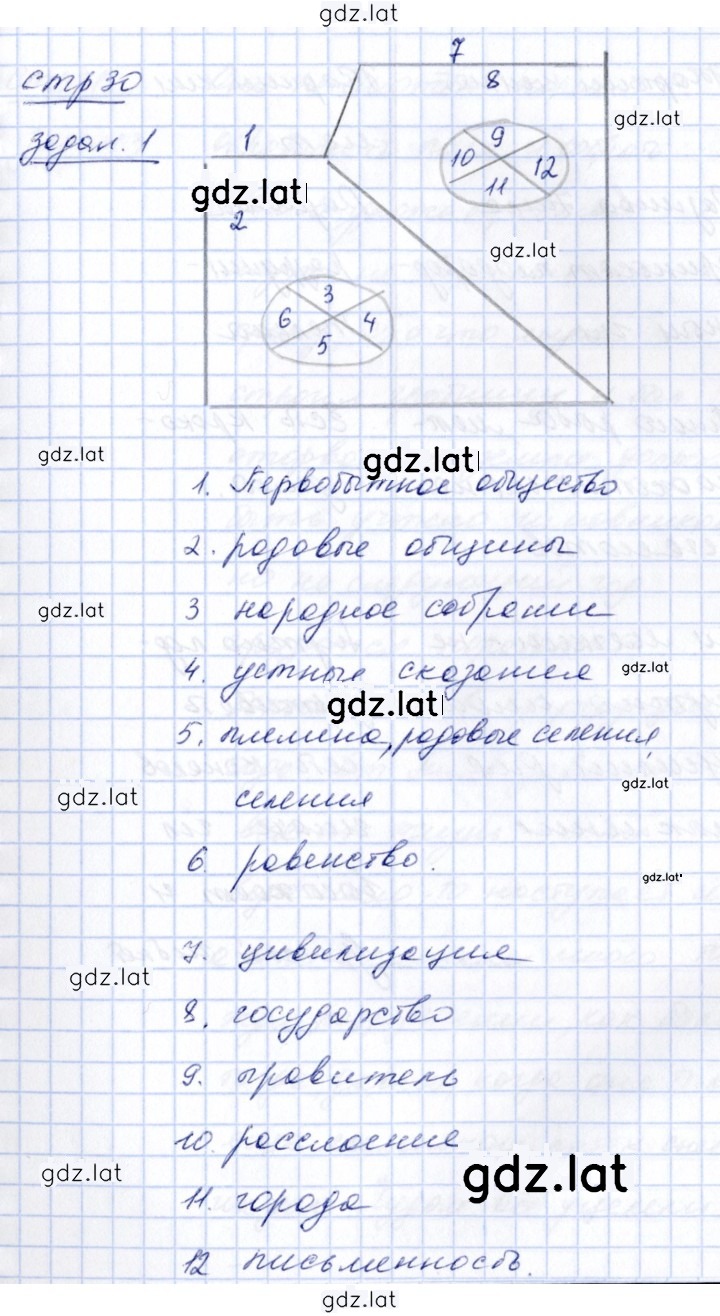 gdz.lat
стр 30
задан. 1
1
7
8
gdz.lat
9
10
12
11
gdz.lat
2
gdz.lat
3
6
4
5
gdz.lat
gdz.lat
1. Первобытное общество
2. родовые общины
gdz.lat
3 народное собрание
4. устные сказания
gdz.lat
gdz.lat
5. племена, родовые селения,
gdz.lat
gdz.lat
селения
6 равенство.
gdz.lat
7. цивилизация
gdz.lat
8. государство
9. правитель
10. расслоение
gdz.lat
gdz.lat
11. города
12 письменность.
gdz.lat